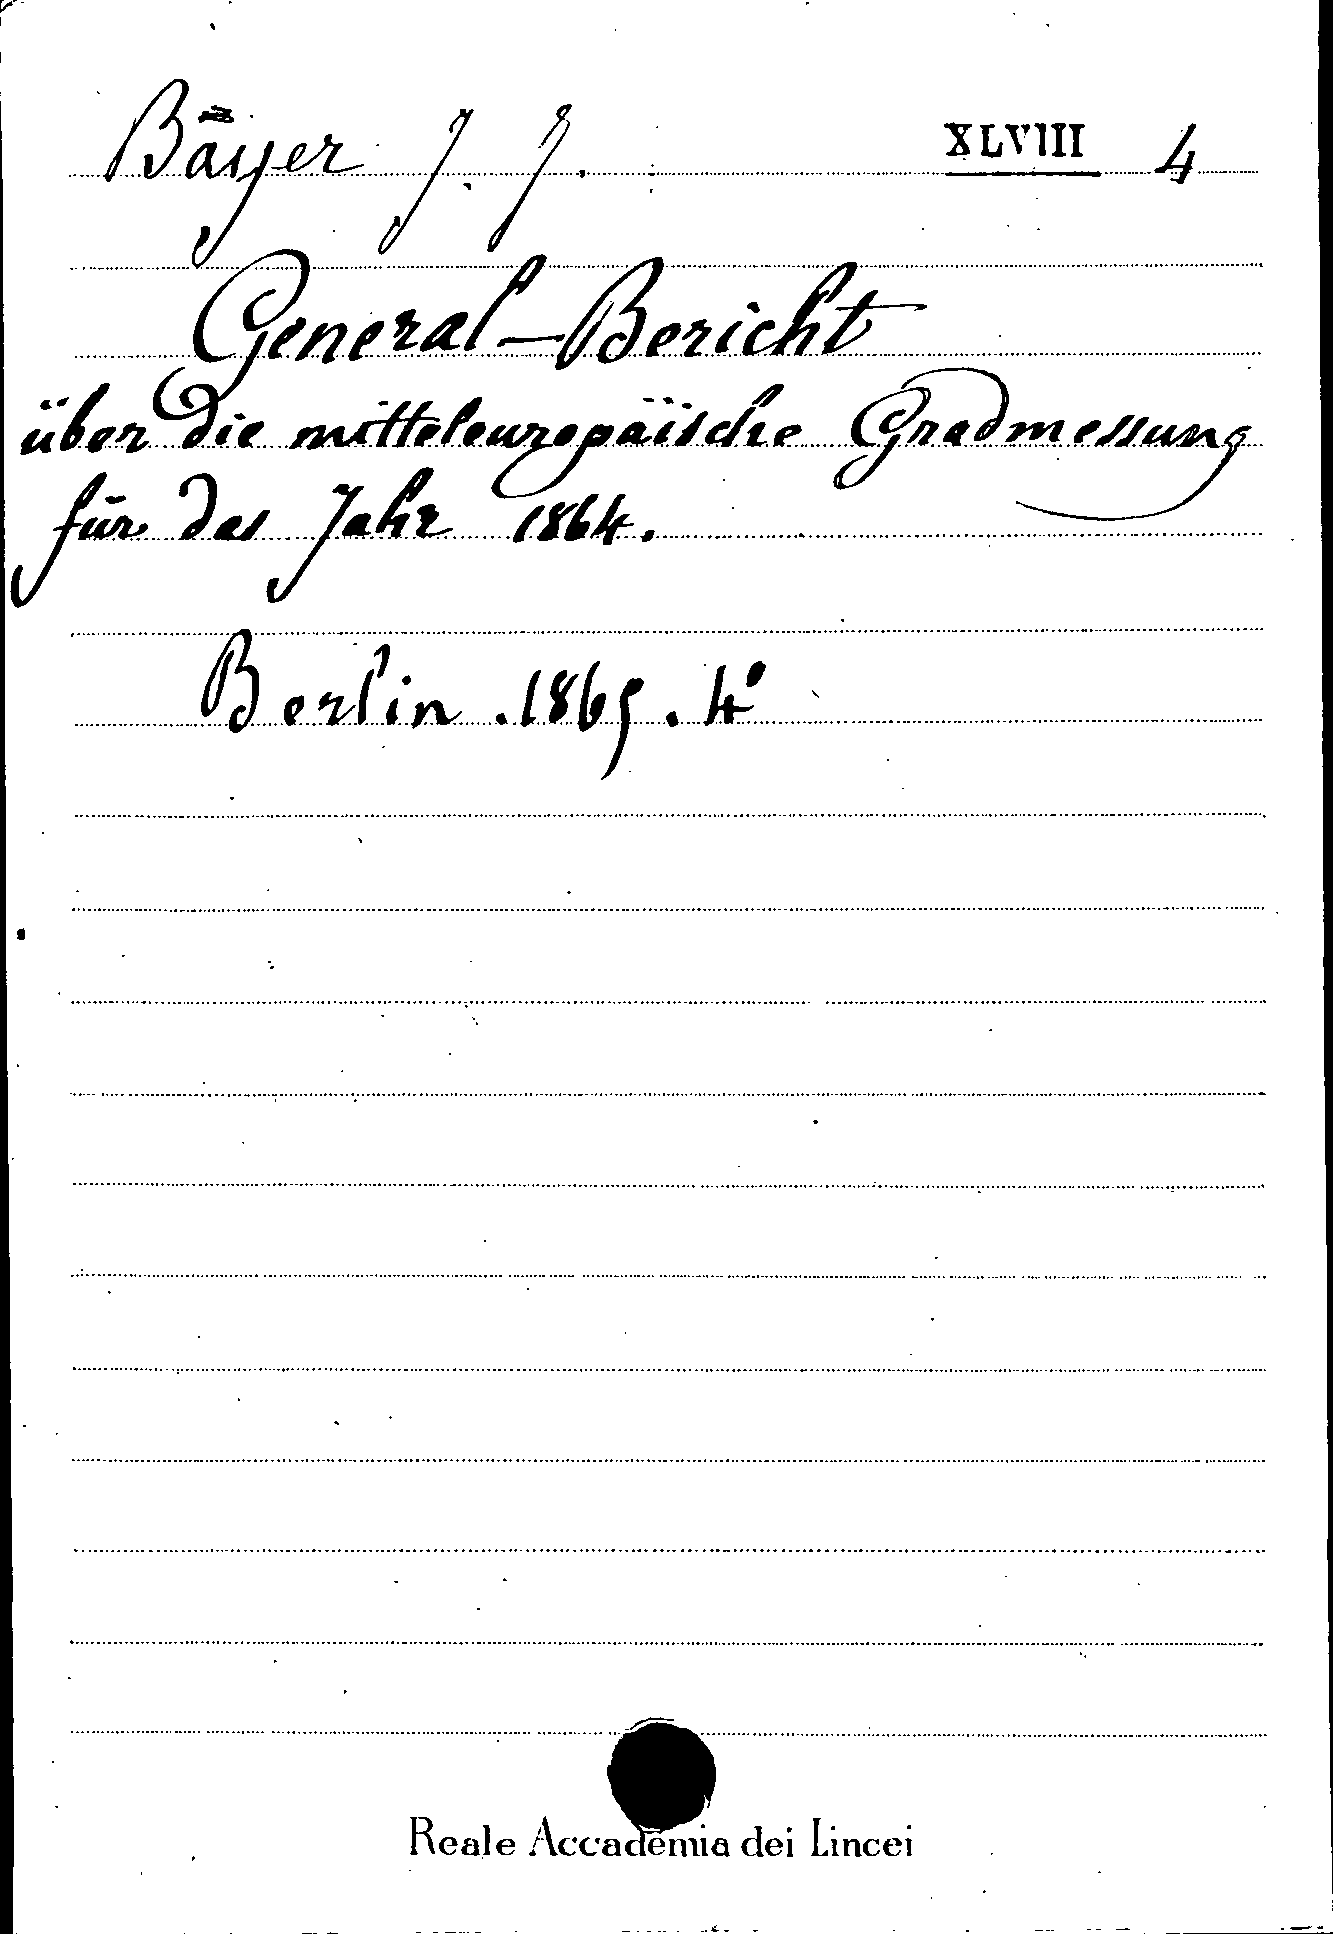 Bäyer J. J. XLVIII 4
General-Bericht
über die mitteleuropäische Gradmessung
für das Jahr 1864.
Berlin. 1865. 4°
Reale Accademia dei Lincei